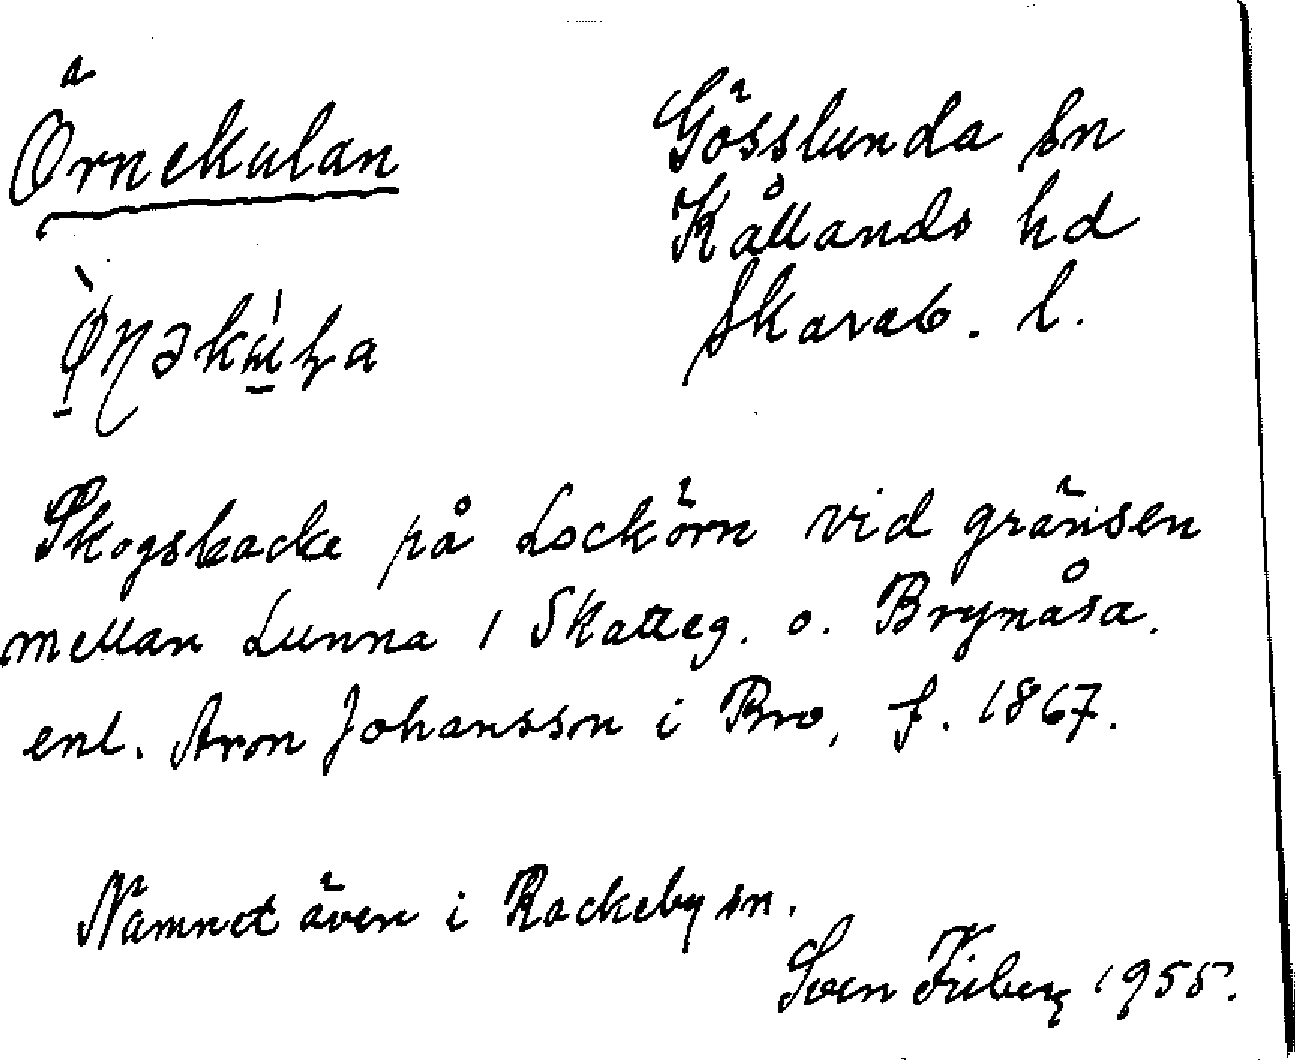 Örnekulan
Gösslunda sn
Kållands hd
Skarab. l.
Skogsbacke på Lockörn vid gränsen
mellan Lunna 1 Skatteg. o. Brynåsa.
enl. Aron Johansson i Bro, f. 1867.
Namnet även i Rackeby sn.
Sven Friberg 1955.